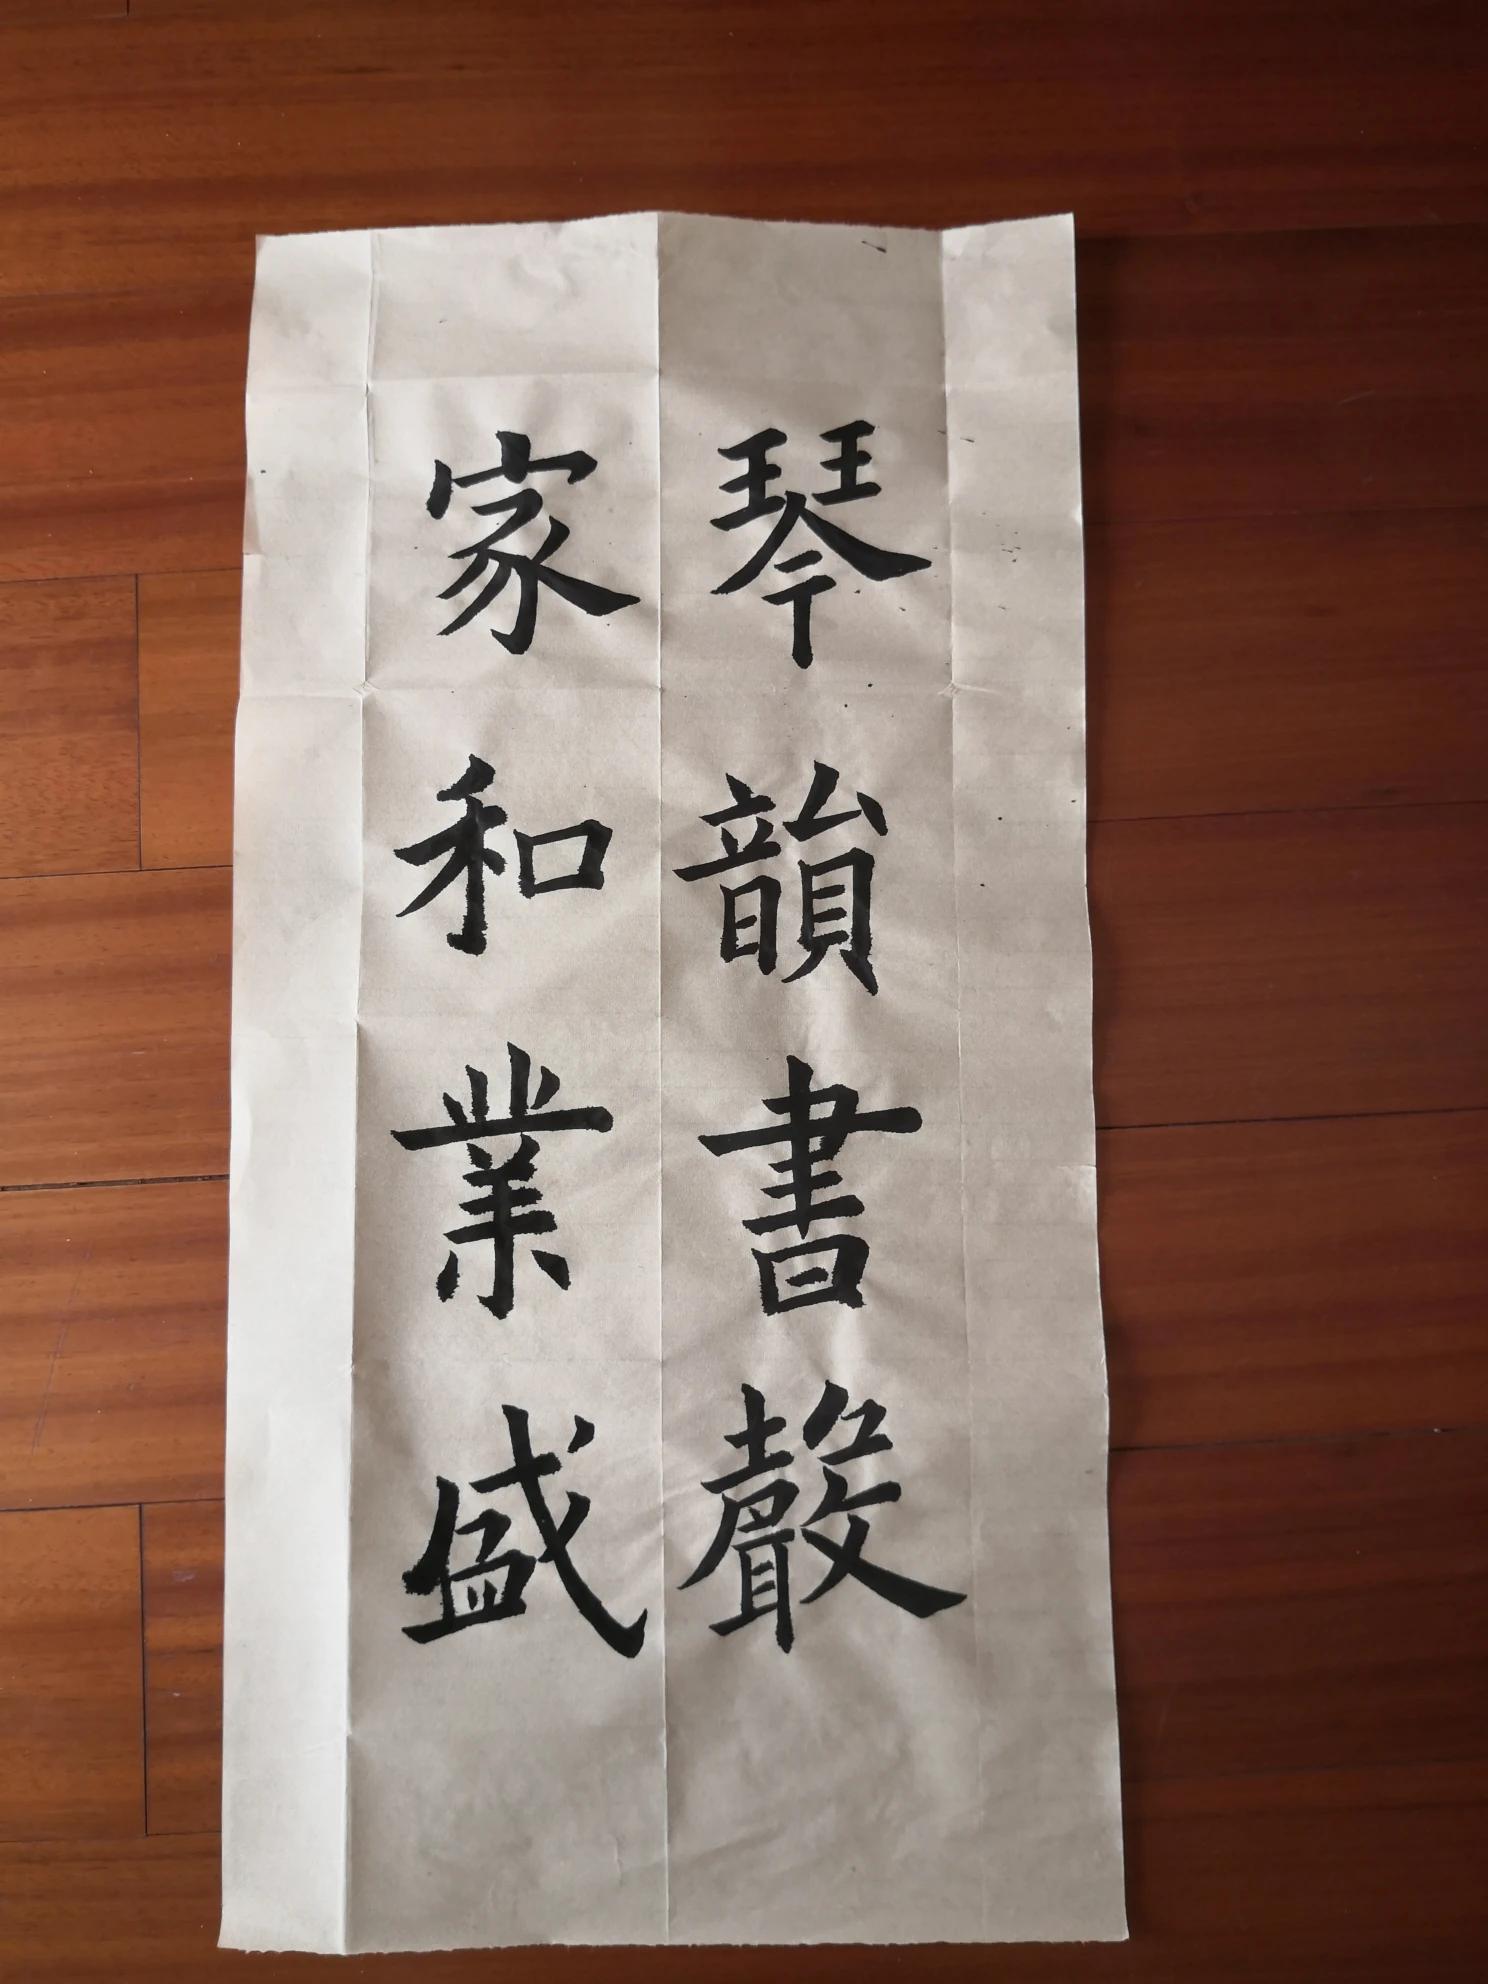 琴韻書聲
家和業盛